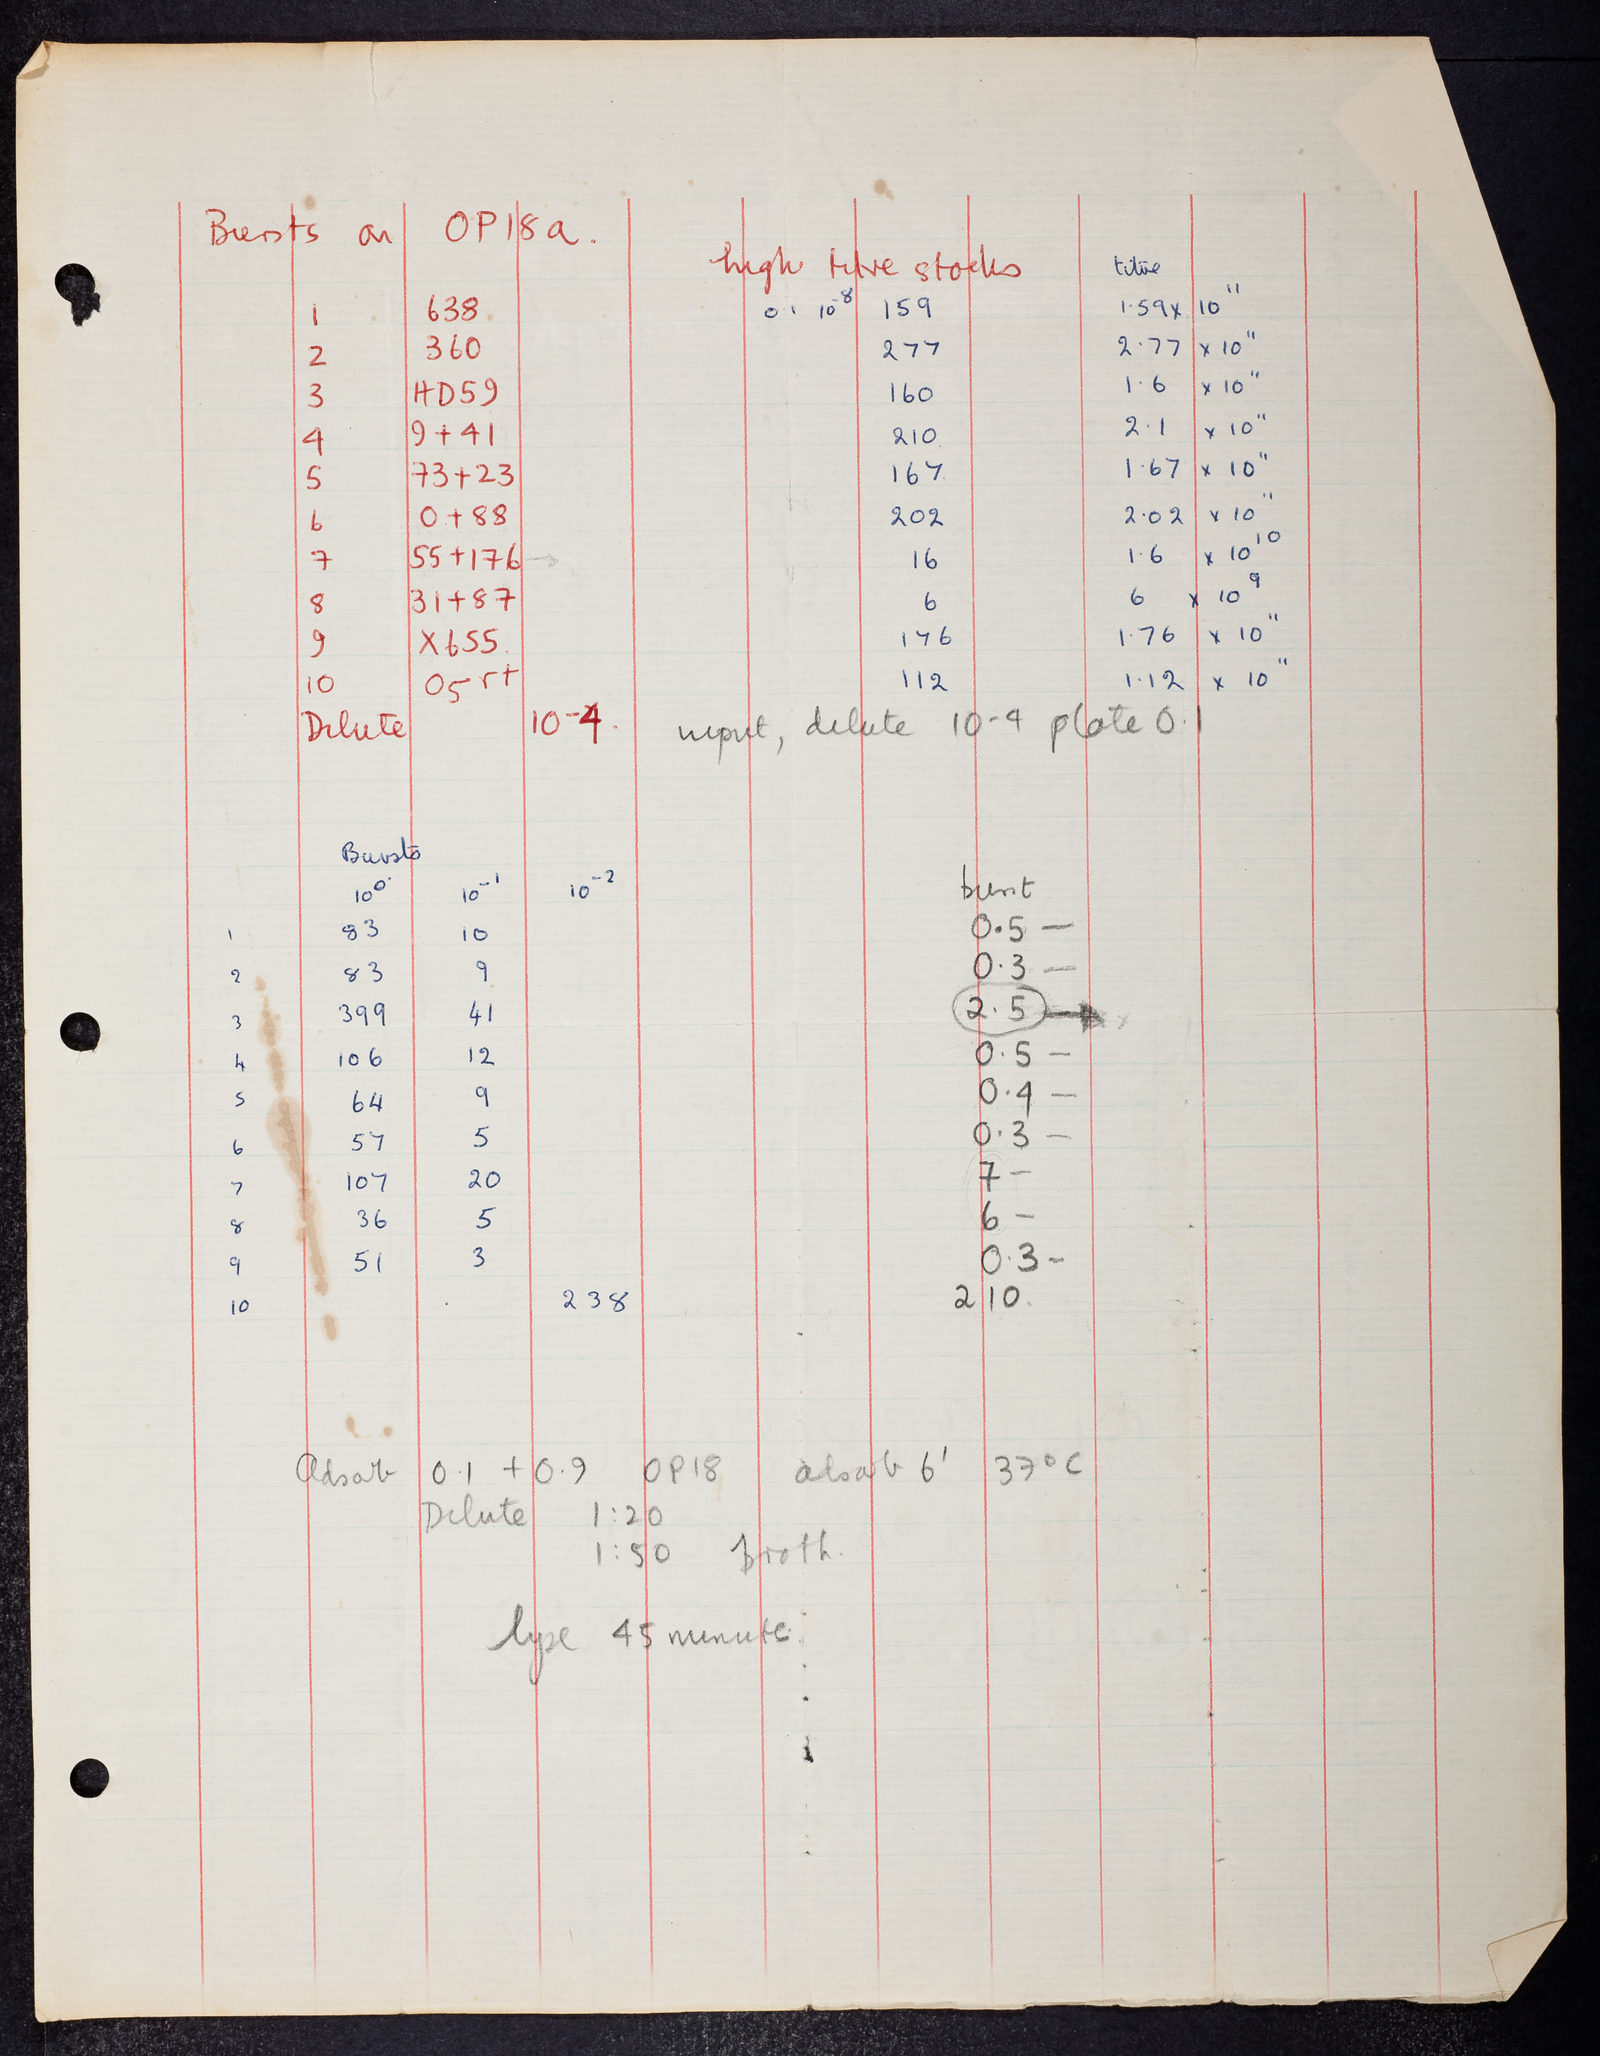 Bursts on OP18a.
high titre stocks titre
1 638 0.1 10⁻⁸ 159 1.59 x 10¹¹
2 360 277 2.77 x 10¹¹
3 HD59 160 1.6 x 10¹¹
4 9+41 210 2.1 x 10¹¹
5 73+23 167 1.67 x 10¹¹
6 0+88 202 2.02 x 10¹¹
7 55+176 → 16 1.6 x 10¹⁰
8 31+87 6 6 x 10⁹
9 X655 176 1.76 x 10¹¹
10 05 r+ 112 1.12 x 10¹¹
Dilute 10-4. input, dilute 10-4 plate 0.1
Bursts
10⁰ 10⁻¹ 10⁻² burst
1 83 10 0.5 —
2 83 9 0.3 —
3 399 41 2.5 →
4 106 12 0.5 —
5 64 9 0.4 —
6 57 5 0.3 —
7 107 20 7 —
8 36 5 6 —
9 51 3 0.3 —
10 238 210.
Adsorb 0.1 + 0.9 OP18 adsorb 6' 37°C
Dilute 1:20
1:50 broth.
lyse 45 minute